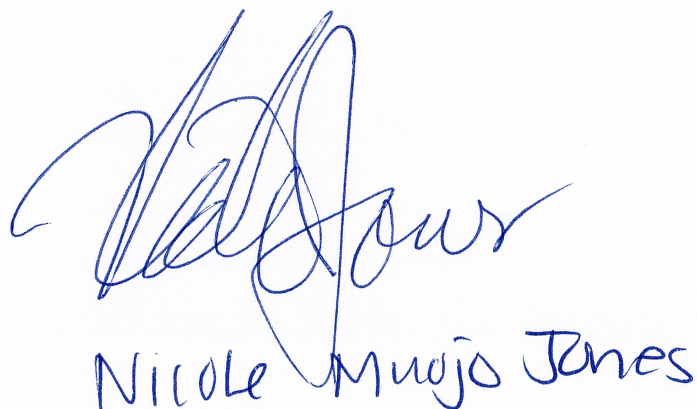 Nicole Muojo Jones